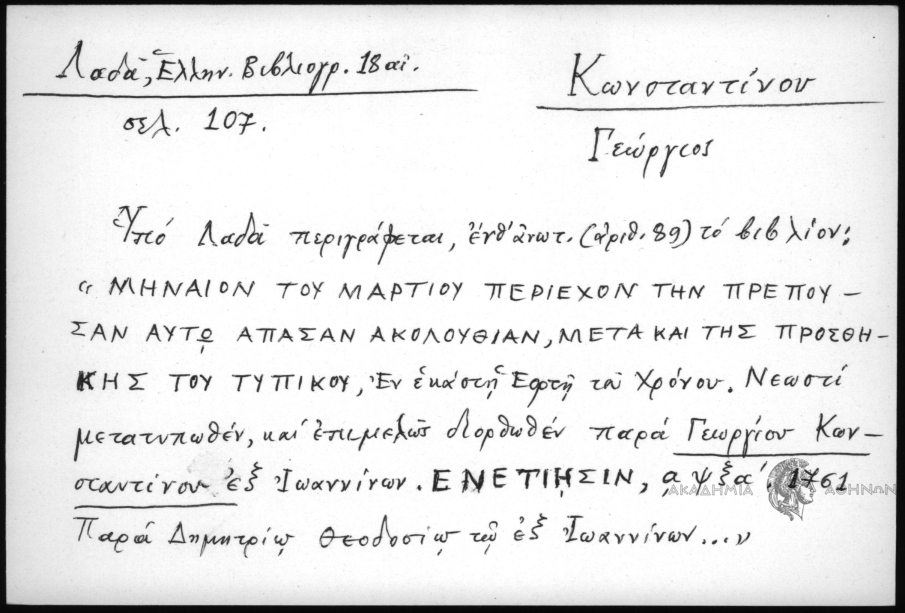 Λαδᾶ, Ἑλλην. Βιβλιογρ. 18 αἰ.
σελ. 107.
Κωνσταντίνου
Γεώργιος
Ὑπό Λαδᾶ περιγράφεται, ἐνθ' ἀνωτ. (ἀριθ. 89) τό βιβλίον:
« ΜΗΝΑΙΟΝ ΤΟΥ ΜΑΡΤΙΟΥ ΠΕΡΙΕΧΟΝ ΤΗΝ ΠΡΕΠΟΥ –
ΣΑΝ ΑΥΤῼ ΑΠΑΣΑΝ ΑΚΟΛΟΥΘΙΑΝ, ΜΕΤΑ ΚΑΙ ΤΗΣ ΠΡΟΣΘΗ –
ΚΗΣ ΤΟΥ ΤΥΠΙΚΟΥ, Ἐν ἑκάστῃ Ἑορτῇ τοῦ Χρόνου. Νεωστί
μετατυπωθέν, καί ἐπιμελῶς διορθωθέν παρά Γεωργίου Κων –
σταντίνου ἐξ Ἰωαννίνων. ΕΝΕΤΙῌΣΙΝ, αψξα΄. 1761
Παρά Δημητρίῳ Θεοδοσίῳ τῷ ἐξ Ἰωαννίνων...»
ΑΚΑΔΗΜΙΑ ΑΘΗΝΩΝ